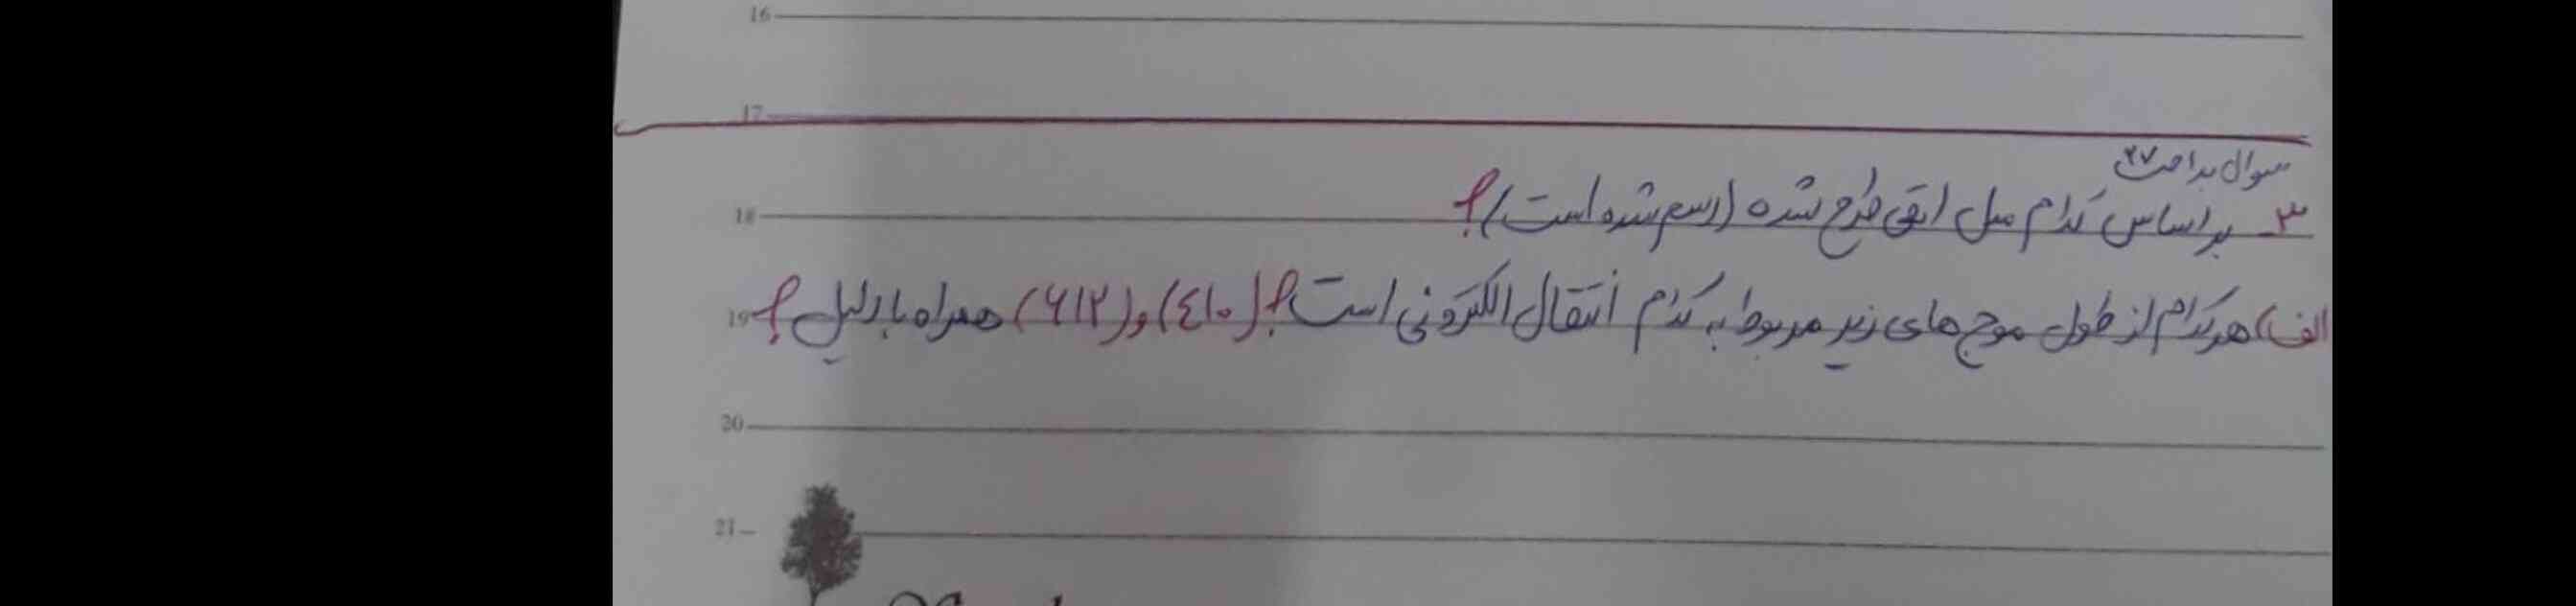 16
17
سوال بداحت ۲۷
18
۳_ بر اساس کدام مدل اتمی طرح شده (رسم شده است)؟
19
الف) هر کدام از طول موج های زیر مربوط به کدام انتقال الکترونی است؟ (٤١٠) و (۶۱۲) همراه با دلیل؟
20
21